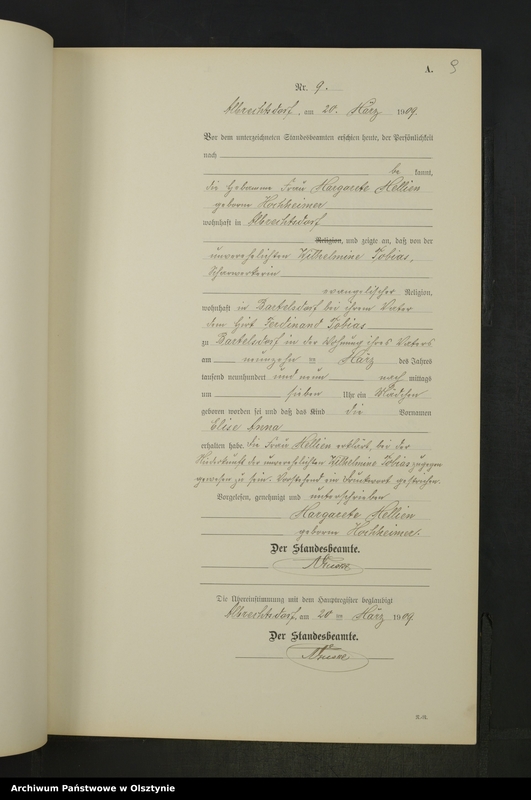 A. 9
Nr. 9.
Albrechtsdorf, am 20. März 1909.
Vor dem unterzeichneten Standesbeamten erschien heute, der Persönlichkeit
nach
be kannt,
die Hebamme Frau Margarete Mellien
geborne Hochheimer
wohnhaft in Albrechtsdorf
Religion, und zeigte an, daß von der
unverehelichten Wilhelmine Tobias,
Scharwerkerin
evangelischer Religion,
wohnhaft in Bartelsdorf bei ihrem Vater
dem Hirt Ferdinand Tobias
zu Bartelsdorf in der Wohnung ihres Vaters
am neunzehn ten März des Jahres
tausend neunhundert und neun nach mittags
um sieben Uhr ein Mädchen
geboren worden sei und daß das Kind die Vornamen
Elise Anna
erhalten habe. Die Frau Mellien erklärt, bei der
Niederkunft der unverehelichten Wilhelmine Tobias zugegen
gewesen zu sein. Vorstehend ein Druckwort gestrichen.
Vorgelesen, genehmigt und unterschrieben
Margarete Mellien
geborne Hochheimer.
Der Standesbeamte.
Die Übereinstimmung mit dem Hauptregister beglaubigt
Albrechtsdorf, am 20 ten März 1909
Der Standesbeamte.
Archiwum Państwowe w Olsztynie